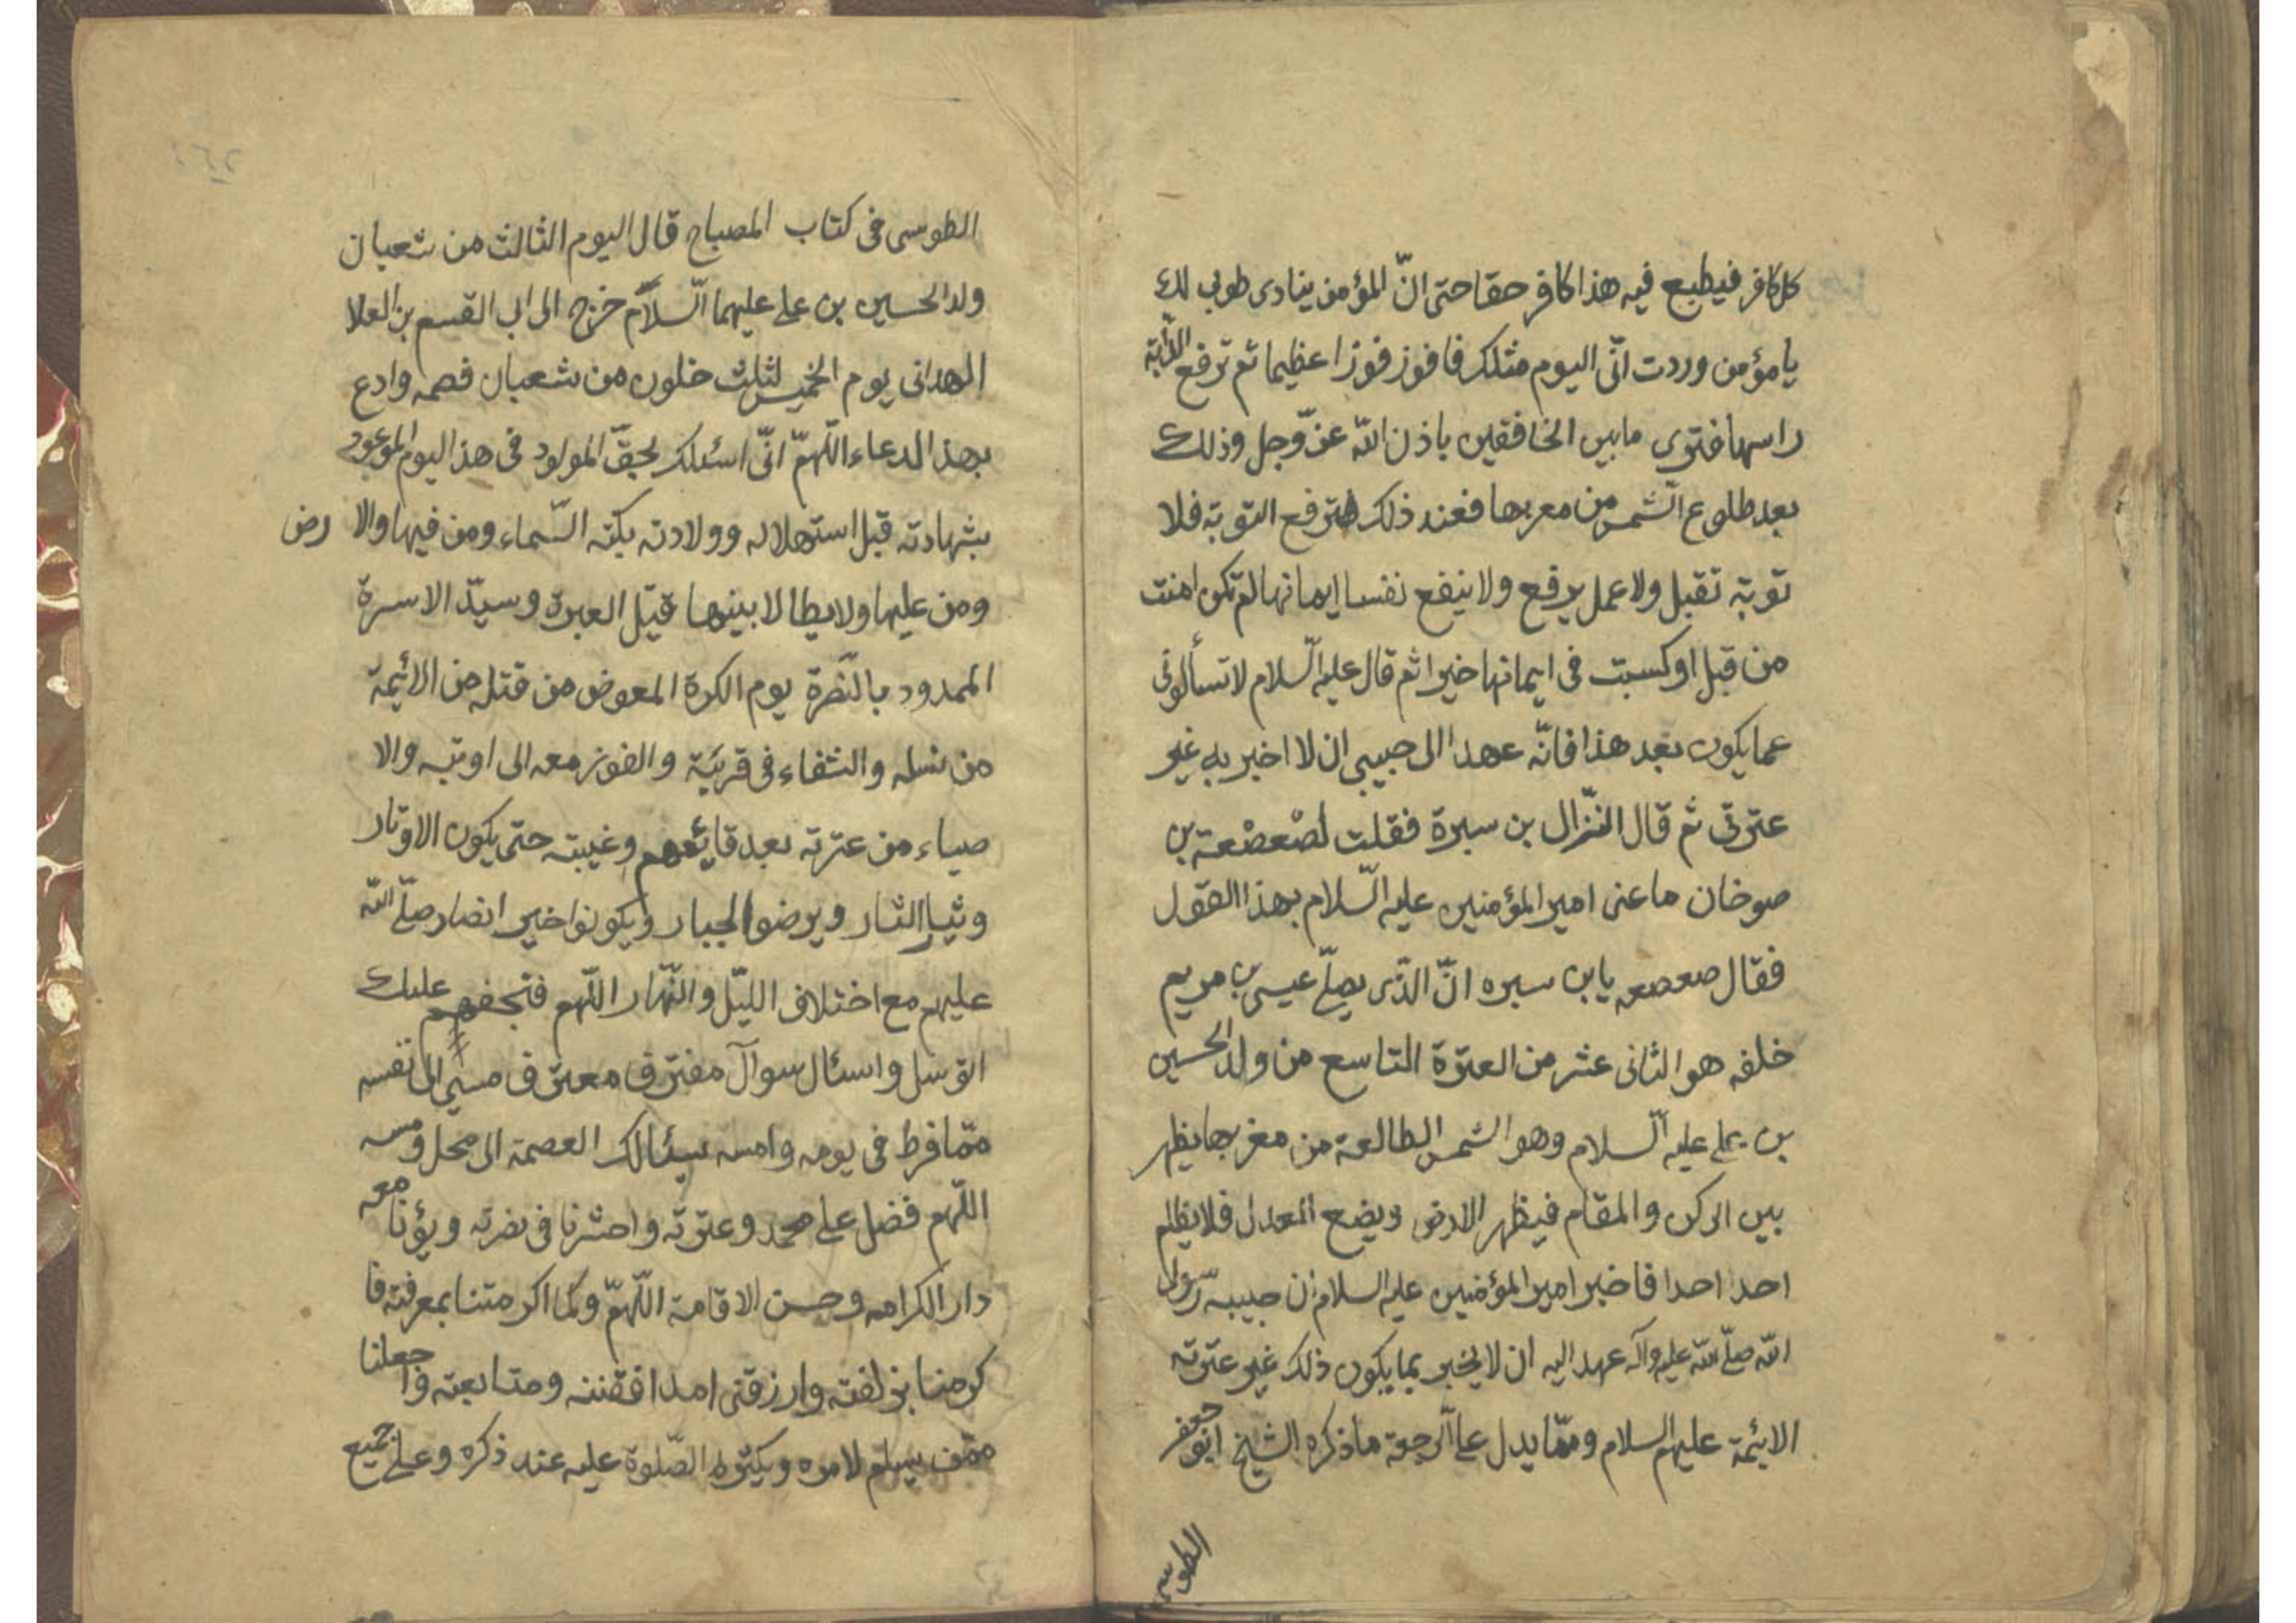 كل كافر فيطبع فيه هذا كافر حقا حتى انّ المؤمن ينادى طوبى لك
يا مؤمن وردت انّى اليوم مثلك فافوز فوزا عظيما ثم ترفع الدّابة
راسها فترى ما بين الخافقين باذن اللّه عزّ وجل وذلك
بعد طلوع الشّمس من مغربها فعند ذلك ترفع التوبة فلا
توبة تقبل ولا عمل يرفع ولا ينفع نفسا ايمانها لم تكن امنت
من قبل او كسبت فى ايمانها خيرا ثم قال عليه السّلام لا تسألونى
عما يكون بعد هذا فانّه عهد الى حبيبى ان لا اخبر به غير
عترتى ثم قال النّزال بن سبرة فقلت لصْعصْعة بن
صوخان ما عنى امير المؤمنين عليه السّلام بهذا القول
فقال صعصعه يا بن سبره انّ الذّى يصلّى عيسى بن مريم
خلفه هو الثانى عشر من العترة التاسع من ولد الحسين
بن على عليه السّلام وهو الشمس الطالعة من مغربها يظهر
بين الركن والمقام فيظهر الارض ويضع العدل فلا يظلم
احد احدا فاخبر امير المؤمنين عليه السلام ان حبيبه رسول
اللّه صلّى اللّه عليه وآله عهد اليه ان لا يخبر بما يكون ذلك غير عترته
الايئمة عليهم السلام وممّا يدل على الرجعة ما ذكره الشيخ ابو جعفر
الطوسى
الطوسى فى كتاب المصباح قال اليوم الثالث من شعبان
ولد الحسين بن على عليهما السّلام خرج الى ابى القسم بن العلا
الهمدانى يوم الخميس لثلث خلون من شعبان فصمه وادع
بهذ الدعاء اللّهمّ انّى اسئلك بحقّ المولود فى هذ اليوم الموعود
بشهادته قبل استهلاله وولادته بكته السّماء ومن فيها والا رض
ومن عليها ولا يطا لابيتها قتيل العبرة وسيّد الاسرة
الممدود بالنّصرة يوم الكرة المعوض من قتله من الائمة
من نسله والشفاء فى قربته والفوز معه الى اوبته والا
صياء من عترته بعد قائمهم وغيبته حتى يكون الاوتار
وثيار الثار ويرضوا الجبار ويكونوا خير انصار صلّى اللّه
عليهم مع اختلاف الليّل والنّهار اللّهم فبحقهم عليك
اتوسل واسئال سوآل مفترق معترف مسىء الى نفسه
ممّا فرط فى يومه وامسه سيئالك العصمة الى محل رمسه
اللّهم فضل على محمد وعترته واحشرنا فى زمرته وبؤنا معه
دار الكرامه وحسن الاقامة اللّهمّ وكما اكرمتنا بمعرفته فا
كرمنا بزلفته وارزقنى ومتابعته واجعلنا
ممّن يسلّم لامره ويكثر الصّلوة عليه عند ذكره وعلى جميع